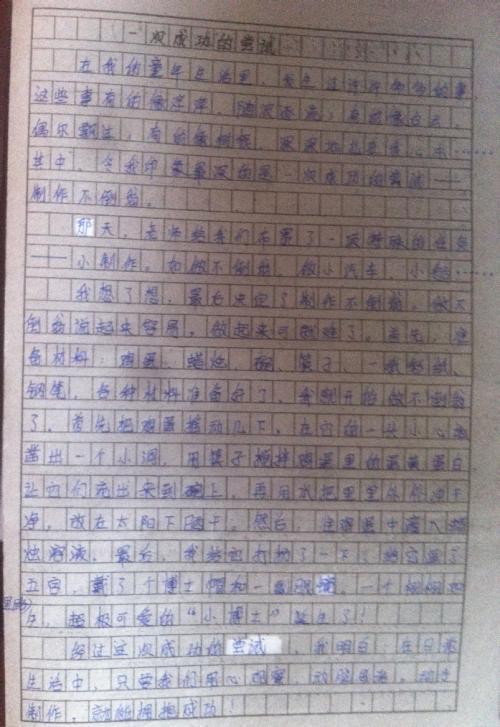 一次成功的尝试
在我的童年生活里，发生过许许多多的事，
这些事有的像浮萍，随波逐流；有的像白云，
偶尔飘过；有的像树根，深深地扎在我心中……
其中，令我印象最深的是一次成功的尝试——
制作不倒翁。
那天，老师给我们布置了一项特殊的任务
——小制作。如做不倒翁，做小汽车，小船……
我想了想，最后决定了制作不倒翁。做不
倒翁说起来容易，做起来可就难了。首先，准
备材料：鸡蛋、蜡烛、碗、筷子、一张彩纸、
钢笔，各种材料准备好了，我就开始做不倒翁
了。首先把鸡蛋摇动几下，在它的一头小心地
凿出一个小洞，用筷子搅拌鸡蛋里的蛋黄蛋白，
让它们流出来到碗上，再用水把里里外外冲干
净，放在太阳下晒干。然后，往鸡蛋中灌入蜡
烛溶液。最后，我给它打扮了一下：给它画了
五官，戴了个博士帽和一副眼镜，一个栩栩如
，超极可爱的“小博士”诞生了！
经过这次成功的尝试，我明白：在日常
生活中，只要我们用心观察，动脑思考，动手
制作，就能拥抱成功！